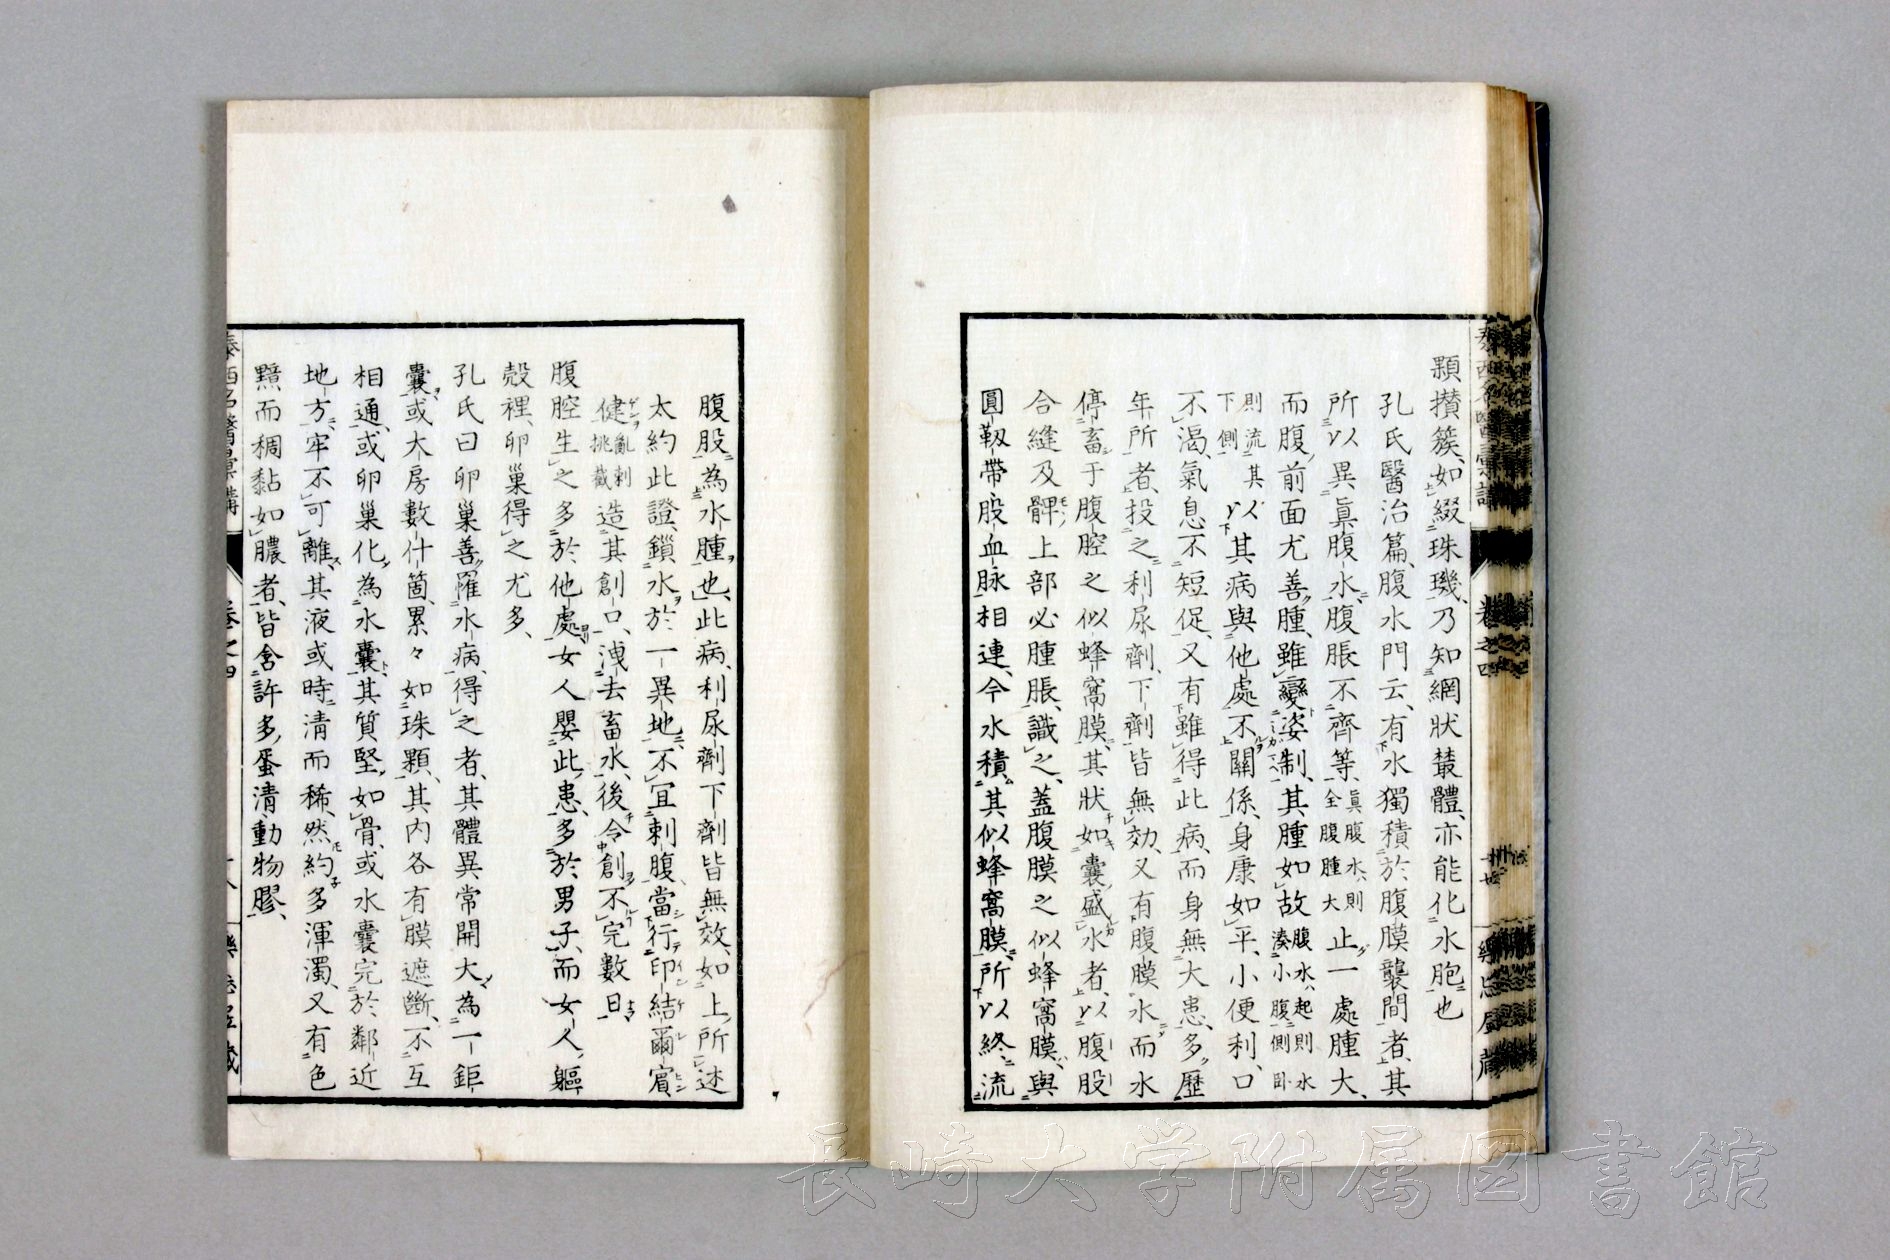 顆攅簇、如綴珠璣、乃知網狀叢體、亦能化水胞也
孔氏醫治篇、腹水門云、有水獨積於腹膜襲間者、其
所以異眞腹水、腹脹不齊等、眞腹水、則全腹腫大止一處腫大、
而腹前面尤善腫、雖變姿制、其腫如故腹水、起則水湊小腹側卧
則流其下側以其病與他處不關係、身康如平、小便利、口
不渴、氣息不短促、又有雖得此病、而身無大患、多歷
年所者、投之利尿劑、下劑皆無効、又有腹膜水而水
停畜于腹腔之似蜂窩膜、其狀如嚢盛水者、以腹股
合縫及髀上部必腫脹、識之、蓋腹膜之似蜂窩膜、與
圓靱帶股血脉相連、今水積其似蜂窩膜、所以終流
腹股為水腫也、此病、利尿劑下劑皆無效、如上所述
太約此證、鎖水於一異地、不宜刺腹、當行印結爾賓
健亂刺挑截造其創口、洩去畜水、後令創不完數日
腹腔生之多於他處、女人嬰此患、多於男子、而女人軀
殼裡、卵巢得之尤多、
孔氏曰卵巢善羅水病、得之者、其體異常開大、為一鉅
嚢、或大房數什箇、累々如珠顆、其内各有膜遮斷、不互
相通、或卵巢化為水嚢、其質堅如骨、或水嚢完於鄰近
地方、牢不可離、其液或時清而稀、然約多渾濁、又有色
黯而稠黏如膿者、皆含許多蛋清動物膠、
泰西名醫彙講
卷之四
長崎大学附属図書館